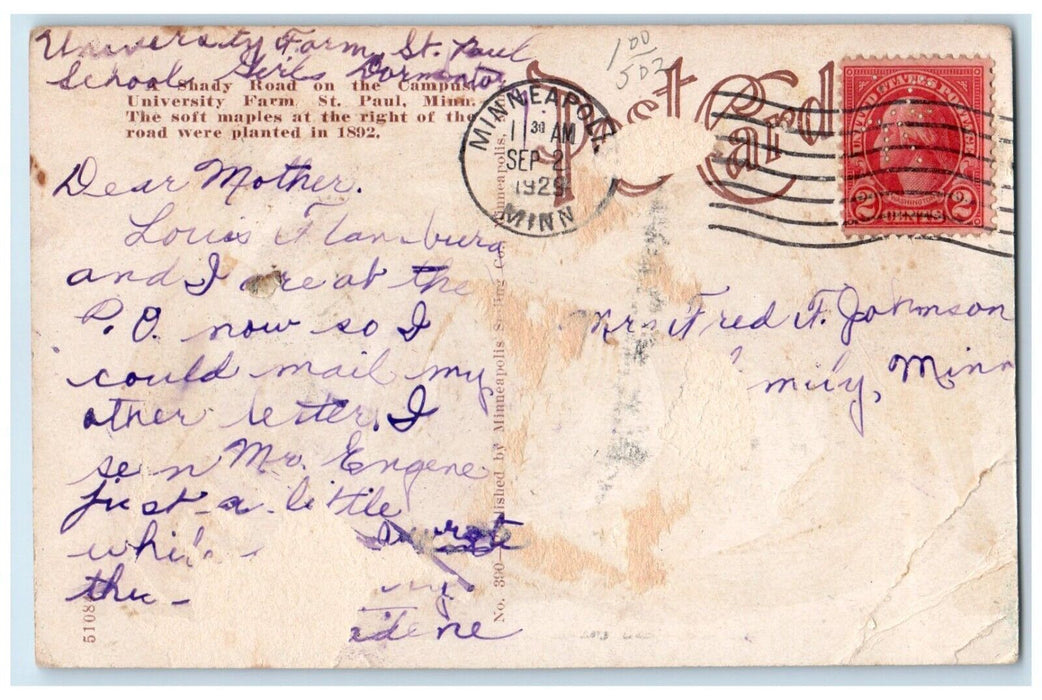 University Farm, St. Paul
School, Girls Dormito
A Shady Road on the Campus
University Farm, St. Paul, Minn.
The soft maples at the right of the
road were planted in 1892.
Dear Mother.
Louis Flansburg
and I are at the
P.O. now so I
could mail my
other letter. I
seen Mr. Engene
just a little
whil
wrote
thi
ing
idene
100
502
Post Card
MINNEAPOLIS
11 30 AM
SEP 2
1929
MINN
UNITED STATES POSTAGE
WASHINGTON
2 CENTS 2
Mrs Fred F. Johnson
mily, Minn
No. 390—Published by Minneapolis Selling Co., Minneapolis,
5108